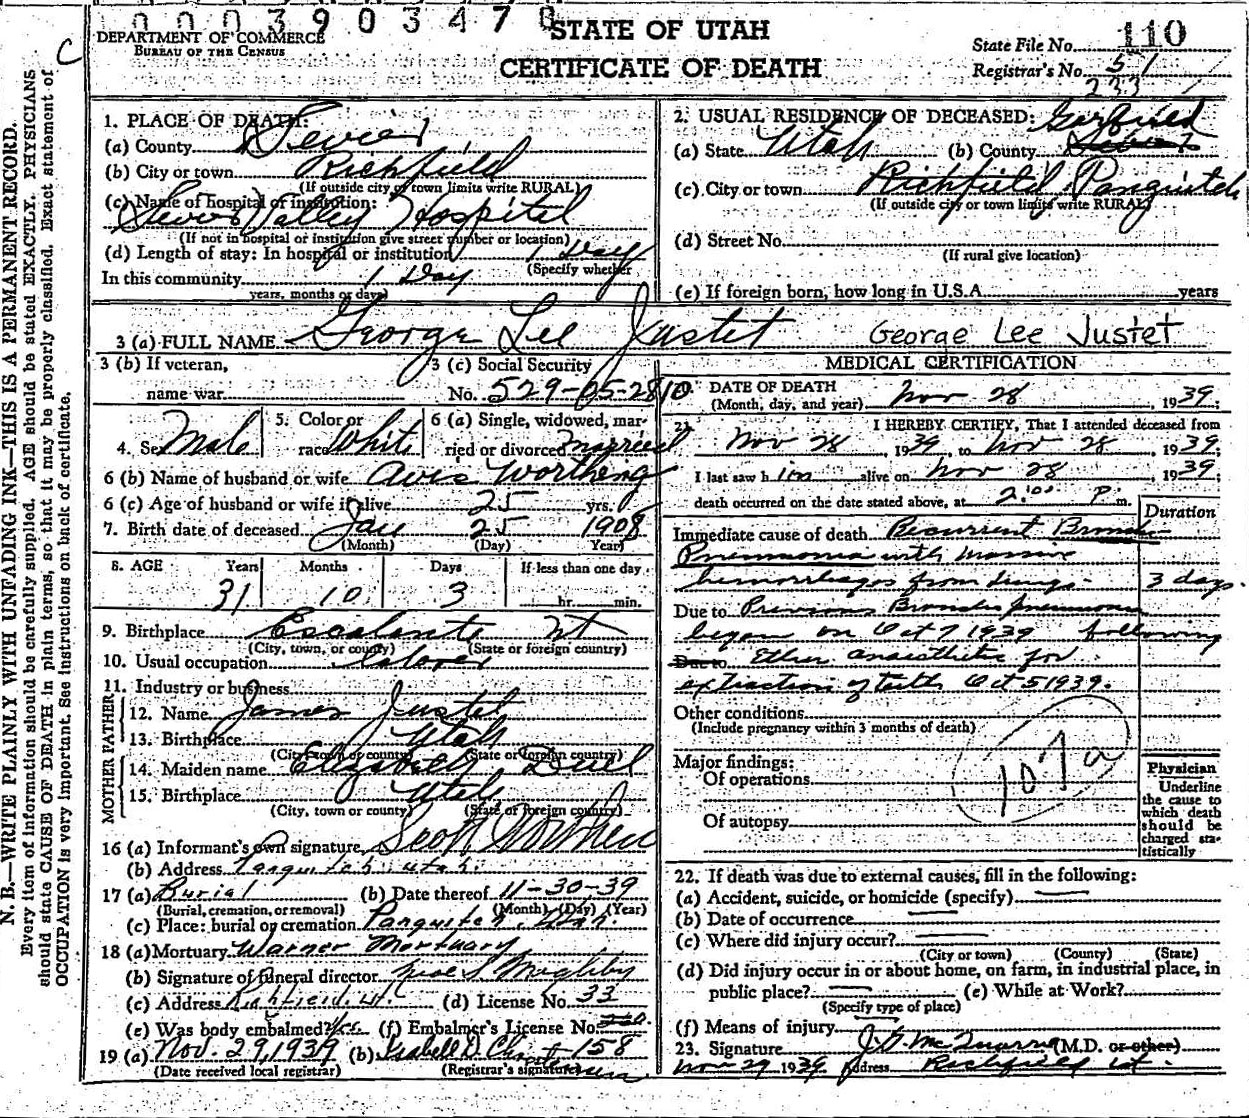 0003903470
STATE OF UTAH
CERTIFICATE OF DEATH
DEPARTMENT OF COMMERCE
BUREAU OF THE CENSUS
C
State File No. 110
Registrar's No. 51
233
N. B.—WRITE PLAINLY WITH UNFADING INK—THIS IS A PERMANENT RECORD.
Every item of information should be carefully supplied. AGE should be stated EXACTLY. PHYSICIANS
should state CAUSE OF DEATH in plain terms, so that it may be properly classified. Exact statement of
OCCUPATION is very important. See instructions on back of certificate.
1. PLACE OF DEATH:
(a) County Sevier
(b) City or town Richfield
(If outside city or town limits write RURAL)
(c) Name of hospital or institution:
Sevier Valley Hospital
(If not in hospital or institution give street number or location)
(d) Length of stay: In hospital or institution 1 Day
(Specify whether
In this community 1 Day
years, months or days)
2. USUAL RESIDENCE OF DECEASED: Garfield
(a) State Utah (b) County Sevier
(c) City or town Richfield Panguitch
(If outside city or town limits write RURAL)
(d) Street No.
(If rural give location)
(e) If foreign born, how long in U.S.A. years
3 (a) FULL NAME George Lee Justet George Lee Justet
3 (b) If veteran,
name war
3 (c) Social Security
No. 529-05-2810
4. Sex Male
5. Color or
race White
6 (a) Single, widowed, mar-
ried or divorced married
6 (b) Name of husband or wife Avis Worthen
6 (c) Age of husband or wife if alive 25 yrs.
7. Birth date of deceased Jan 25 1908
(Month) (Day) Year)
8. AGE Years Months Days If less than one day
31 10 3 hr. min.
9. Birthplace Escalante Ut
(City, town, or county) (State or foreign country)
10. Usual occupation Laborer
11. Industry or business
FATHER
12. Name James Justet
13. Birthplace Utah
(City town or county) (State or foreign country)
MOTHER
14. Maiden name Elizabeth Duel
15. Birthplace Utah
(City, town or county) (State or foreign country)
16 (a) Informant's own signature Scott Worthen
(b) Address Panguitch, Utah.
17 (a) Burial (b) Date thereof 11-30-39
(Burial, cremation, or removal) (Month) (Day) (Year)
(c) Place: burial or cremation Panguitch, Utah.
18 (a) Mortuary Warner Mortuary
(b) Signature of funeral director
(c) Address Richfield, Ut. (d) License No. 33
(e) Was body embalmed? Yes (f) Embalmer's License No.
19 (a) Nov. 29, 1939 (b) Isabell D. 158
(Date received local registrar) (Registrar's signature)
MEDICAL CERTIFICATION
DATE OF DEATH
(Month, day, and year) Nov 28, 1939;
21. I HEREBY CERTIFY, That I attended deceased from
Nov 28, 1939, to Nov 28, 1939;
I last saw him alive on Nov 28, 1939;
death occurred on the date stated above, at 2:00 P. m.
Duration
Immediate cause of death Recurrent Broncho
Pneumonia with massive
hemorrhages from lungs. 3 days.
Due to Previous Broncho pneumonia
began on Oct 7 1939 following
Due to Ether anaesthetic for
extraction of teeth Oct 5 1939.
Other conditions
(Include pregnancy within 3 months of death)
Major findings:
Of operations
Of autopsy
107a
Physician
Underline
the cause to
which death
should be
charged sta-
tistically
22. If death was due to external causes, fill in the following:
(a) Accident, suicide, or homicide (specify)
(b) Date of occurrence
(c) Where did injury occur?
(City or town) (County) (State)
(d) Did injury occur in or about home, on farm, in industrial place, in
public place? (e) While at Work?
(Specify type of place)
(f) Means of injury
23. Signature (M.D. or other)
Nov 29 1939 Address Richfield Ut.